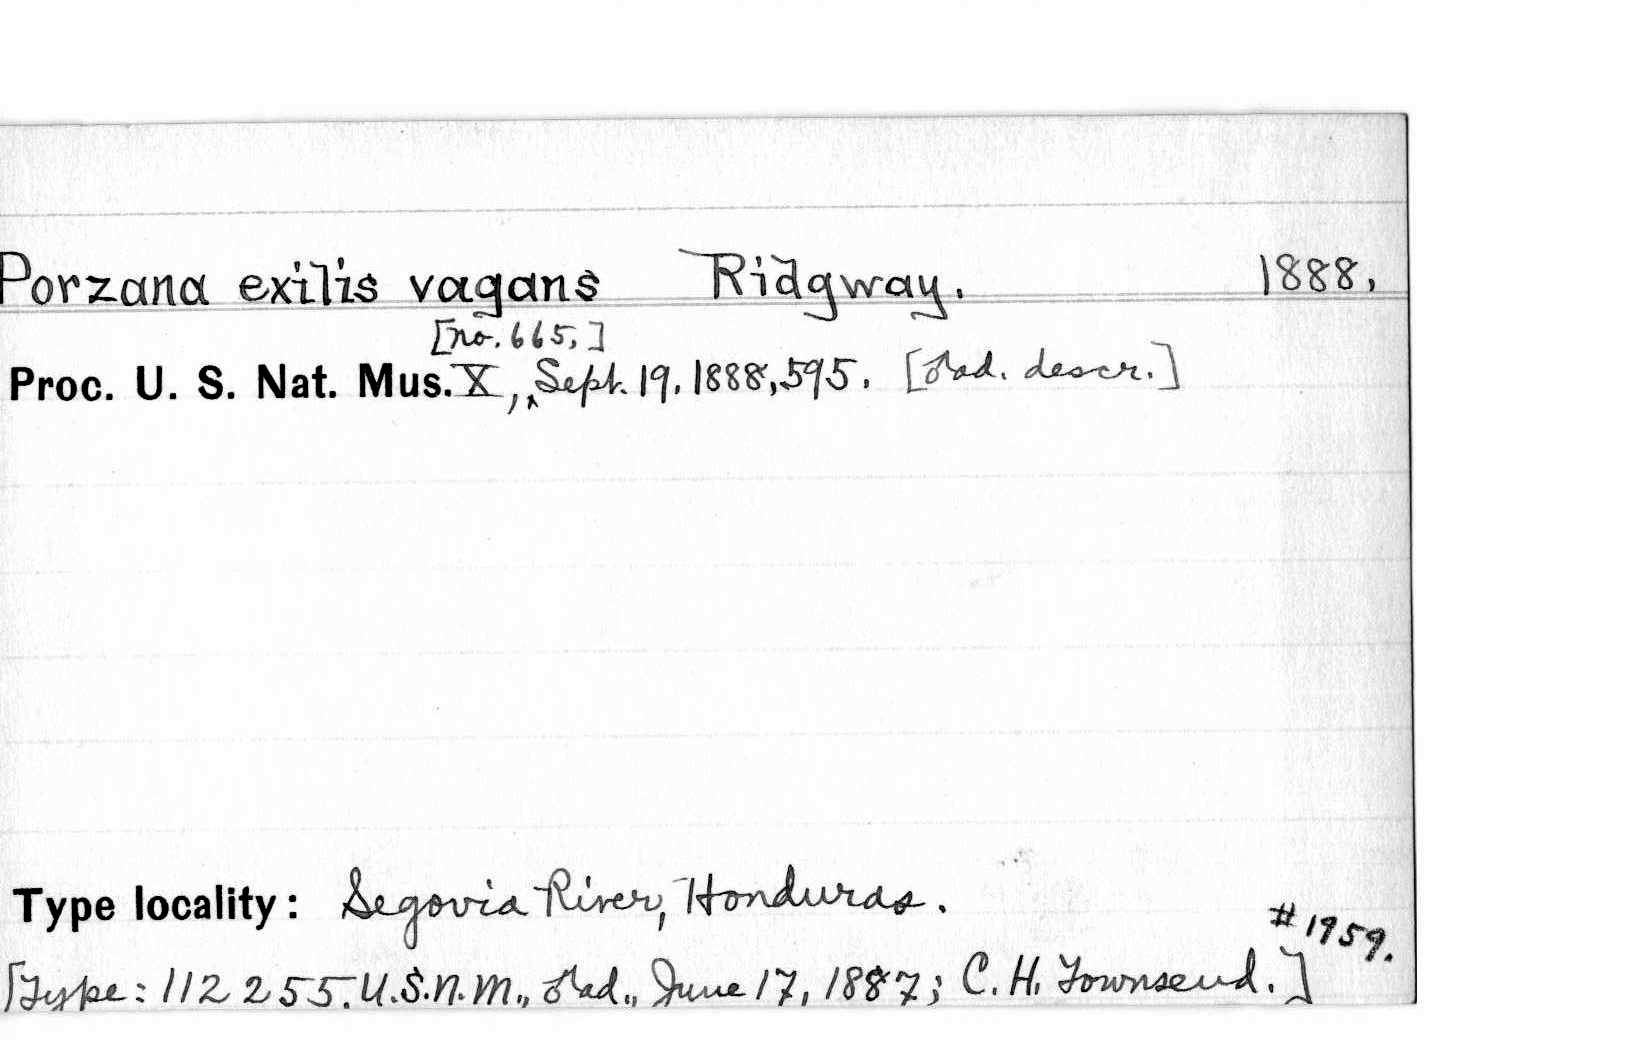 Porzana exilis vagans Ridgway. 1888.
[no. 665.]
Proc. U. S. Nat. Mus. X, ^ Sept. 19. 1888, 595. [♂ad. descr.]
Type locality: Segovia River, Honduras.
#1959.
[Type: 112255. U.S.N.M., ♂ad., June 17, 1887; C. H. Townsend.]